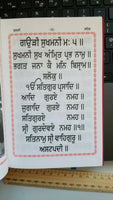 ਗਉੜੀ ਸੁਖਮਨੀ ਮਃ ੫॥
ਸੁਖਮਨੀ ਸੁਖ ਅੰਮ੍ਰਿਤ ਪ੍ਰਭ ਨਾਮੁ॥
ਭਗਤ ਜਨਾ ਕੈ ਮਨਿ ਬਿਸ੍ਰਾਮ॥
ਸਲੋਕੁ॥
ੴ ਸਤਿਗੁਰ ਪ੍ਰਸਾਦਿ॥
ਆਦਿ ਗੁਰਏ ਨਮਹ॥
ਜੁਗਾਦਿ ਗੁਰਏ ਨਮਹ॥
ਸਤਿਗੁਰਏ ਨਮਹ॥
ਸ੍ਰੀ ਗੁਰਦੇਵਏ ਨਮਹ॥੧॥
ਸਤਿਨਾਮੁ ਸ੍ਰੀ ਵਾਹਿਗੁਰੂ॥
ਅਸਟਪਦੀ॥